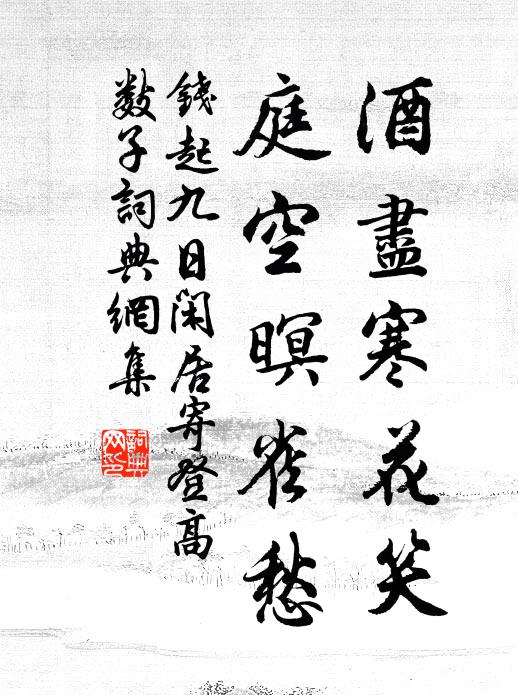 酒盡寒花笑
庭空暝雀愁
錢起九日閑居寄登高
數子詞典網集
詞典
网印